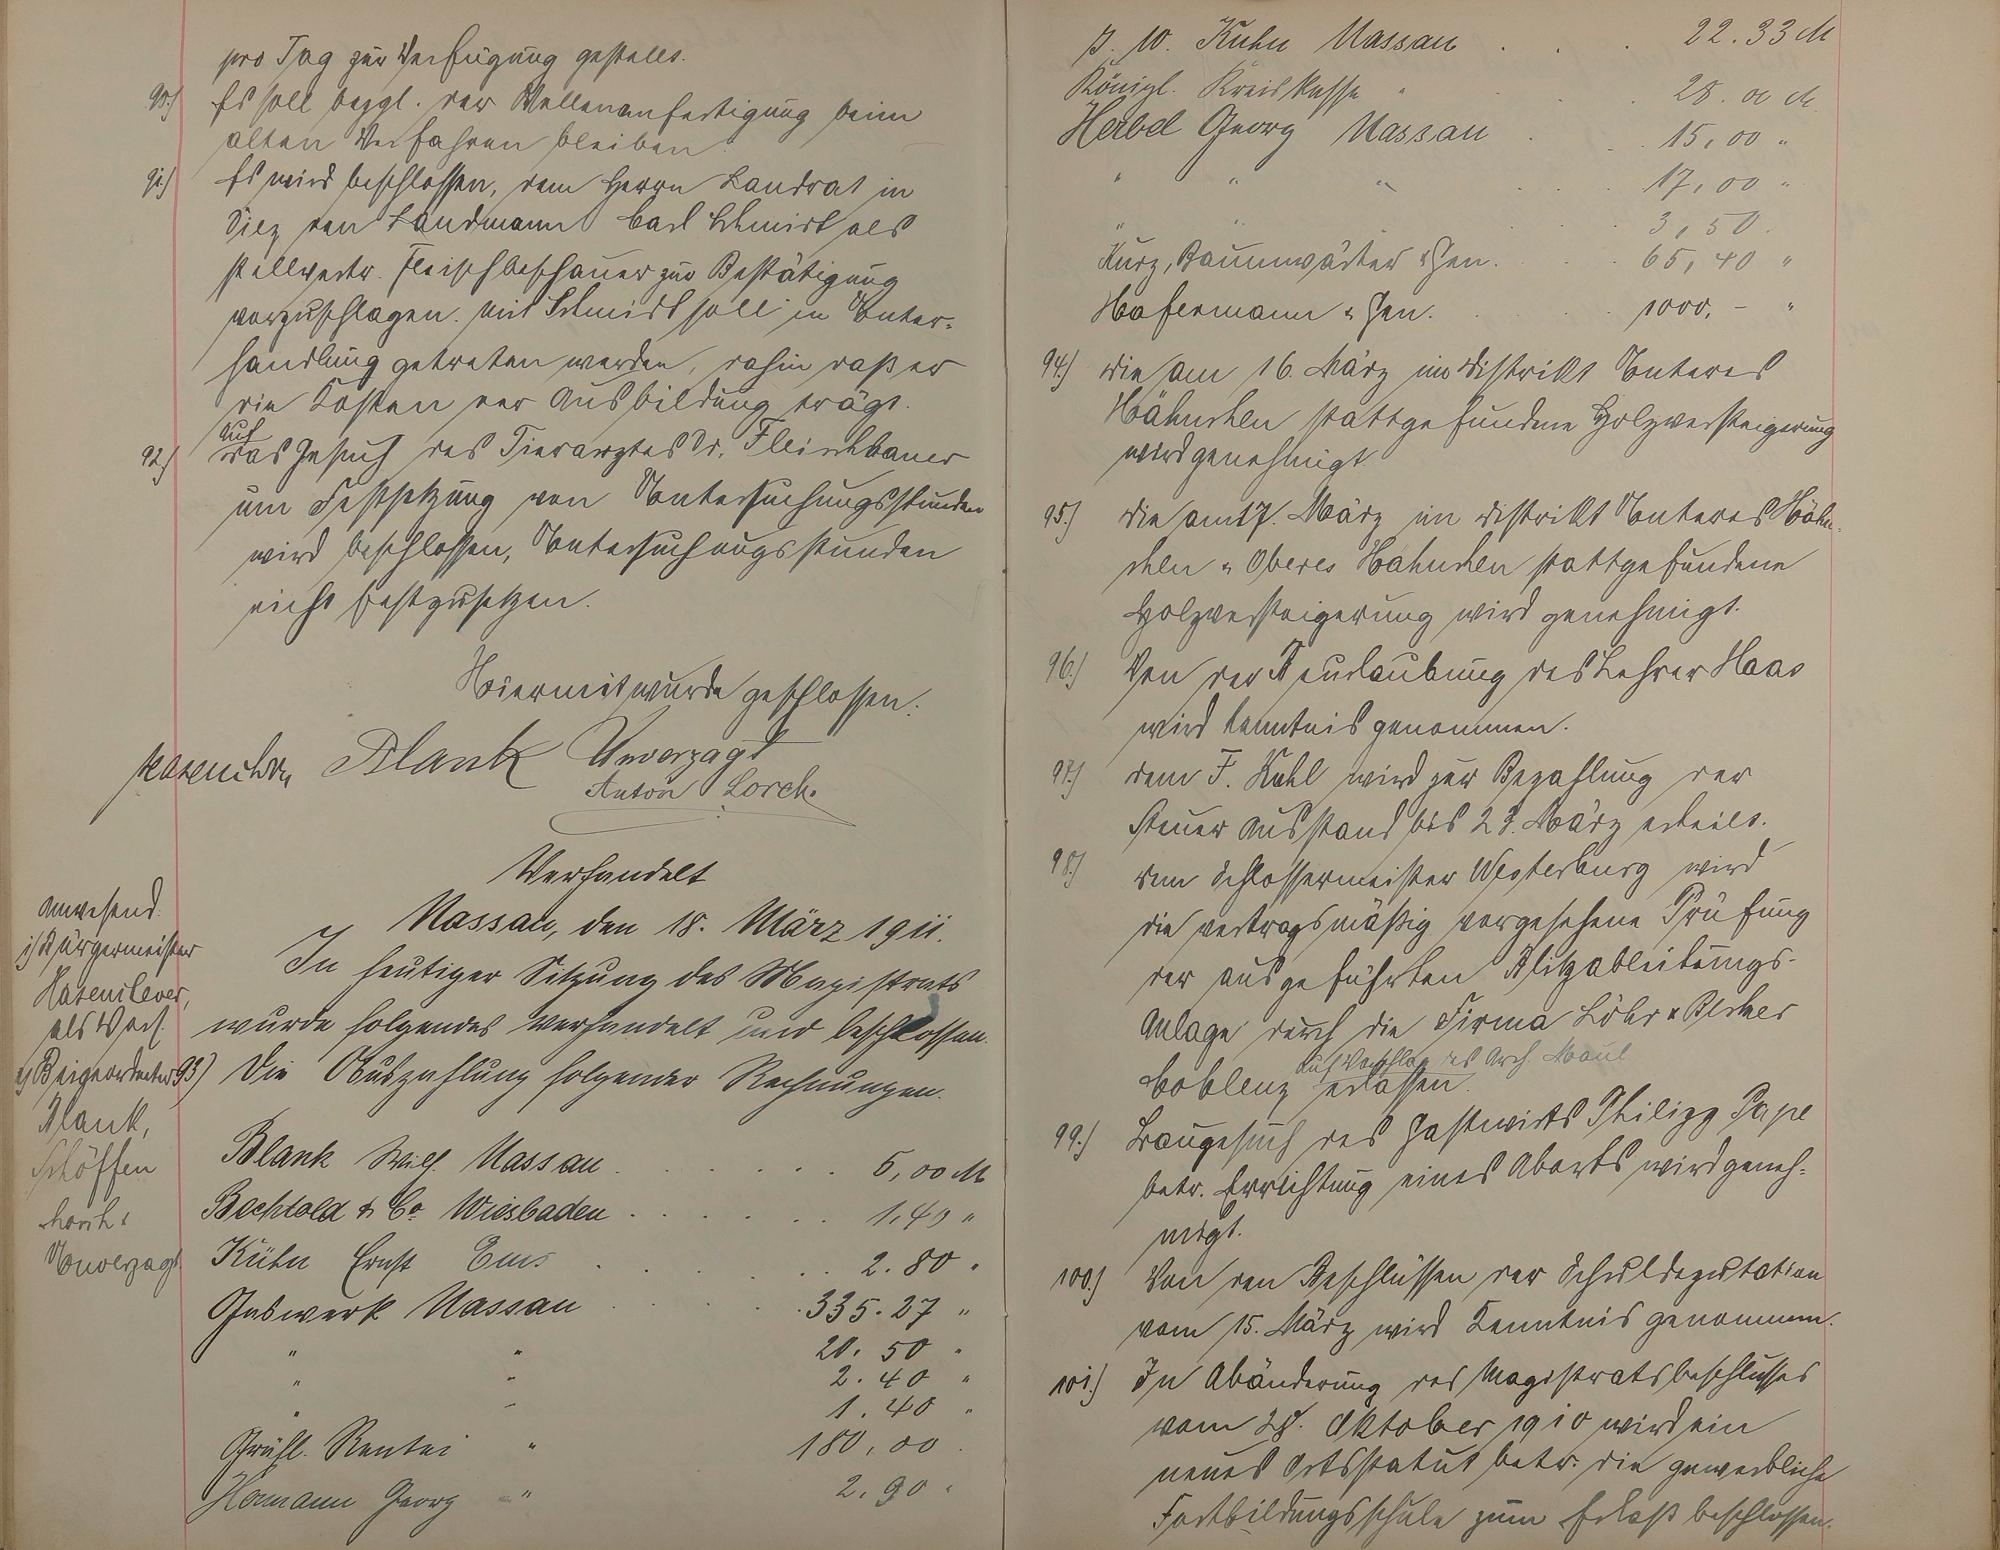 pro Tag zur Verfügung gestellt.
90.) Es soll bezgl. der Wellenanfertigung beim
alten Verfahren bleiben.
91.) Es wird beschlossen, dem Herrn Landrat in
Diez den Landmann Carl Schmidt als
stellvertr. Fleischbeschauer zur Bestätigung
vorzuschlagen. Mit Schmidt soll in Unter-
handlung getreten werden, dahin daß er
die Kosten der Ausbildung trägt.
92.) Auf das Gesuch des Tierarztes Dr. Fleischhauer
um Festsetzung von Untersuchungsstunden
wird beschlossen, Untersuchungsstunden
nicht festzusetzen.
Hiermit wurde geschlossen.
Hasenclever Blank Unverzagt
Anton Lorch.
Verhandelt
Nassau, den 18. März 1911.
Anwesend:
1) Bürgermeister
Hasenclever,
als Vors.
2) Beigeordneter
Blank,
Schöffen
Lorch &
Unverzagt
In heutiger Sitzung des Magistrats
wurde folgendes verhandelt und beschlossen.
93) Die Auszahlung folgender Rechnungen.
Blank Wilh. Nassau . . . . . . 6,00 M
Bechtold & Co. Wiesbaden . . . . . . 1.40 "
Kühn Ernst Ems . . . . . . 2.80 "
Gaswerk Nassau . . . . . 335.27 "
" " 20.50 "
" " 2.40 "
" " 1.40 "
Gräfl. Rentei " 180,00
Hermann Georg " 2.90 "
J. W. Kuhn Nassau . . . 22.33 M
Königl. Kreiskasse " . . 28.00 M.
Herbel Georg Nassau . . . 15,00 "
" " " . . . 17,00 "
" " . . 3,50.
Kurz, Baumwärter & Gen. . . . 65,40 "
Hafermann & Gen. . . . 1000,- "
94.) Die am 16. März im Distrikt Unteres
Hähnchen stattgefundene Holzversteigerung
wird genehmigt.
95.) Die am 17. März im Distrikt Unteres Hähn-
chen & Oberes Hähnchen stattgefundene
Holzversteigerung wird genehmigt.
96.) Von der Beurlaubung des Lehrer Haas
wird Kenntnis genommen.
97.) Dem F. Kuhl wird zur Bezahlung der
Steuer Ausstand bis 29. März erteilt.
98.) Dem Schlossermeister Westerburg wird
die vertragsmäßig vorgesehene Prüfung
der ausgeführten Blitzableitungs-
Anlage durch die Firma Löhr & Becker
auf Vorschlag des Arch. Maul
Coblenz erlassen.
99.) Baugesuch des Gastwirts Philipp Pape
betr. Errichtung eines Aborts wird geneh-
migt.
100.) Von den Beschlüssen der Schuldeputation
vom 15. März wird Kenntnis genommen.
101.) In Abänderung des Magistratsbeschlusses
vom 28. Oktober 1910 wird ein
neues Ortsstatut betr. die gewerbliche
Fortbildungsschule zum Erlaß beschlossen.